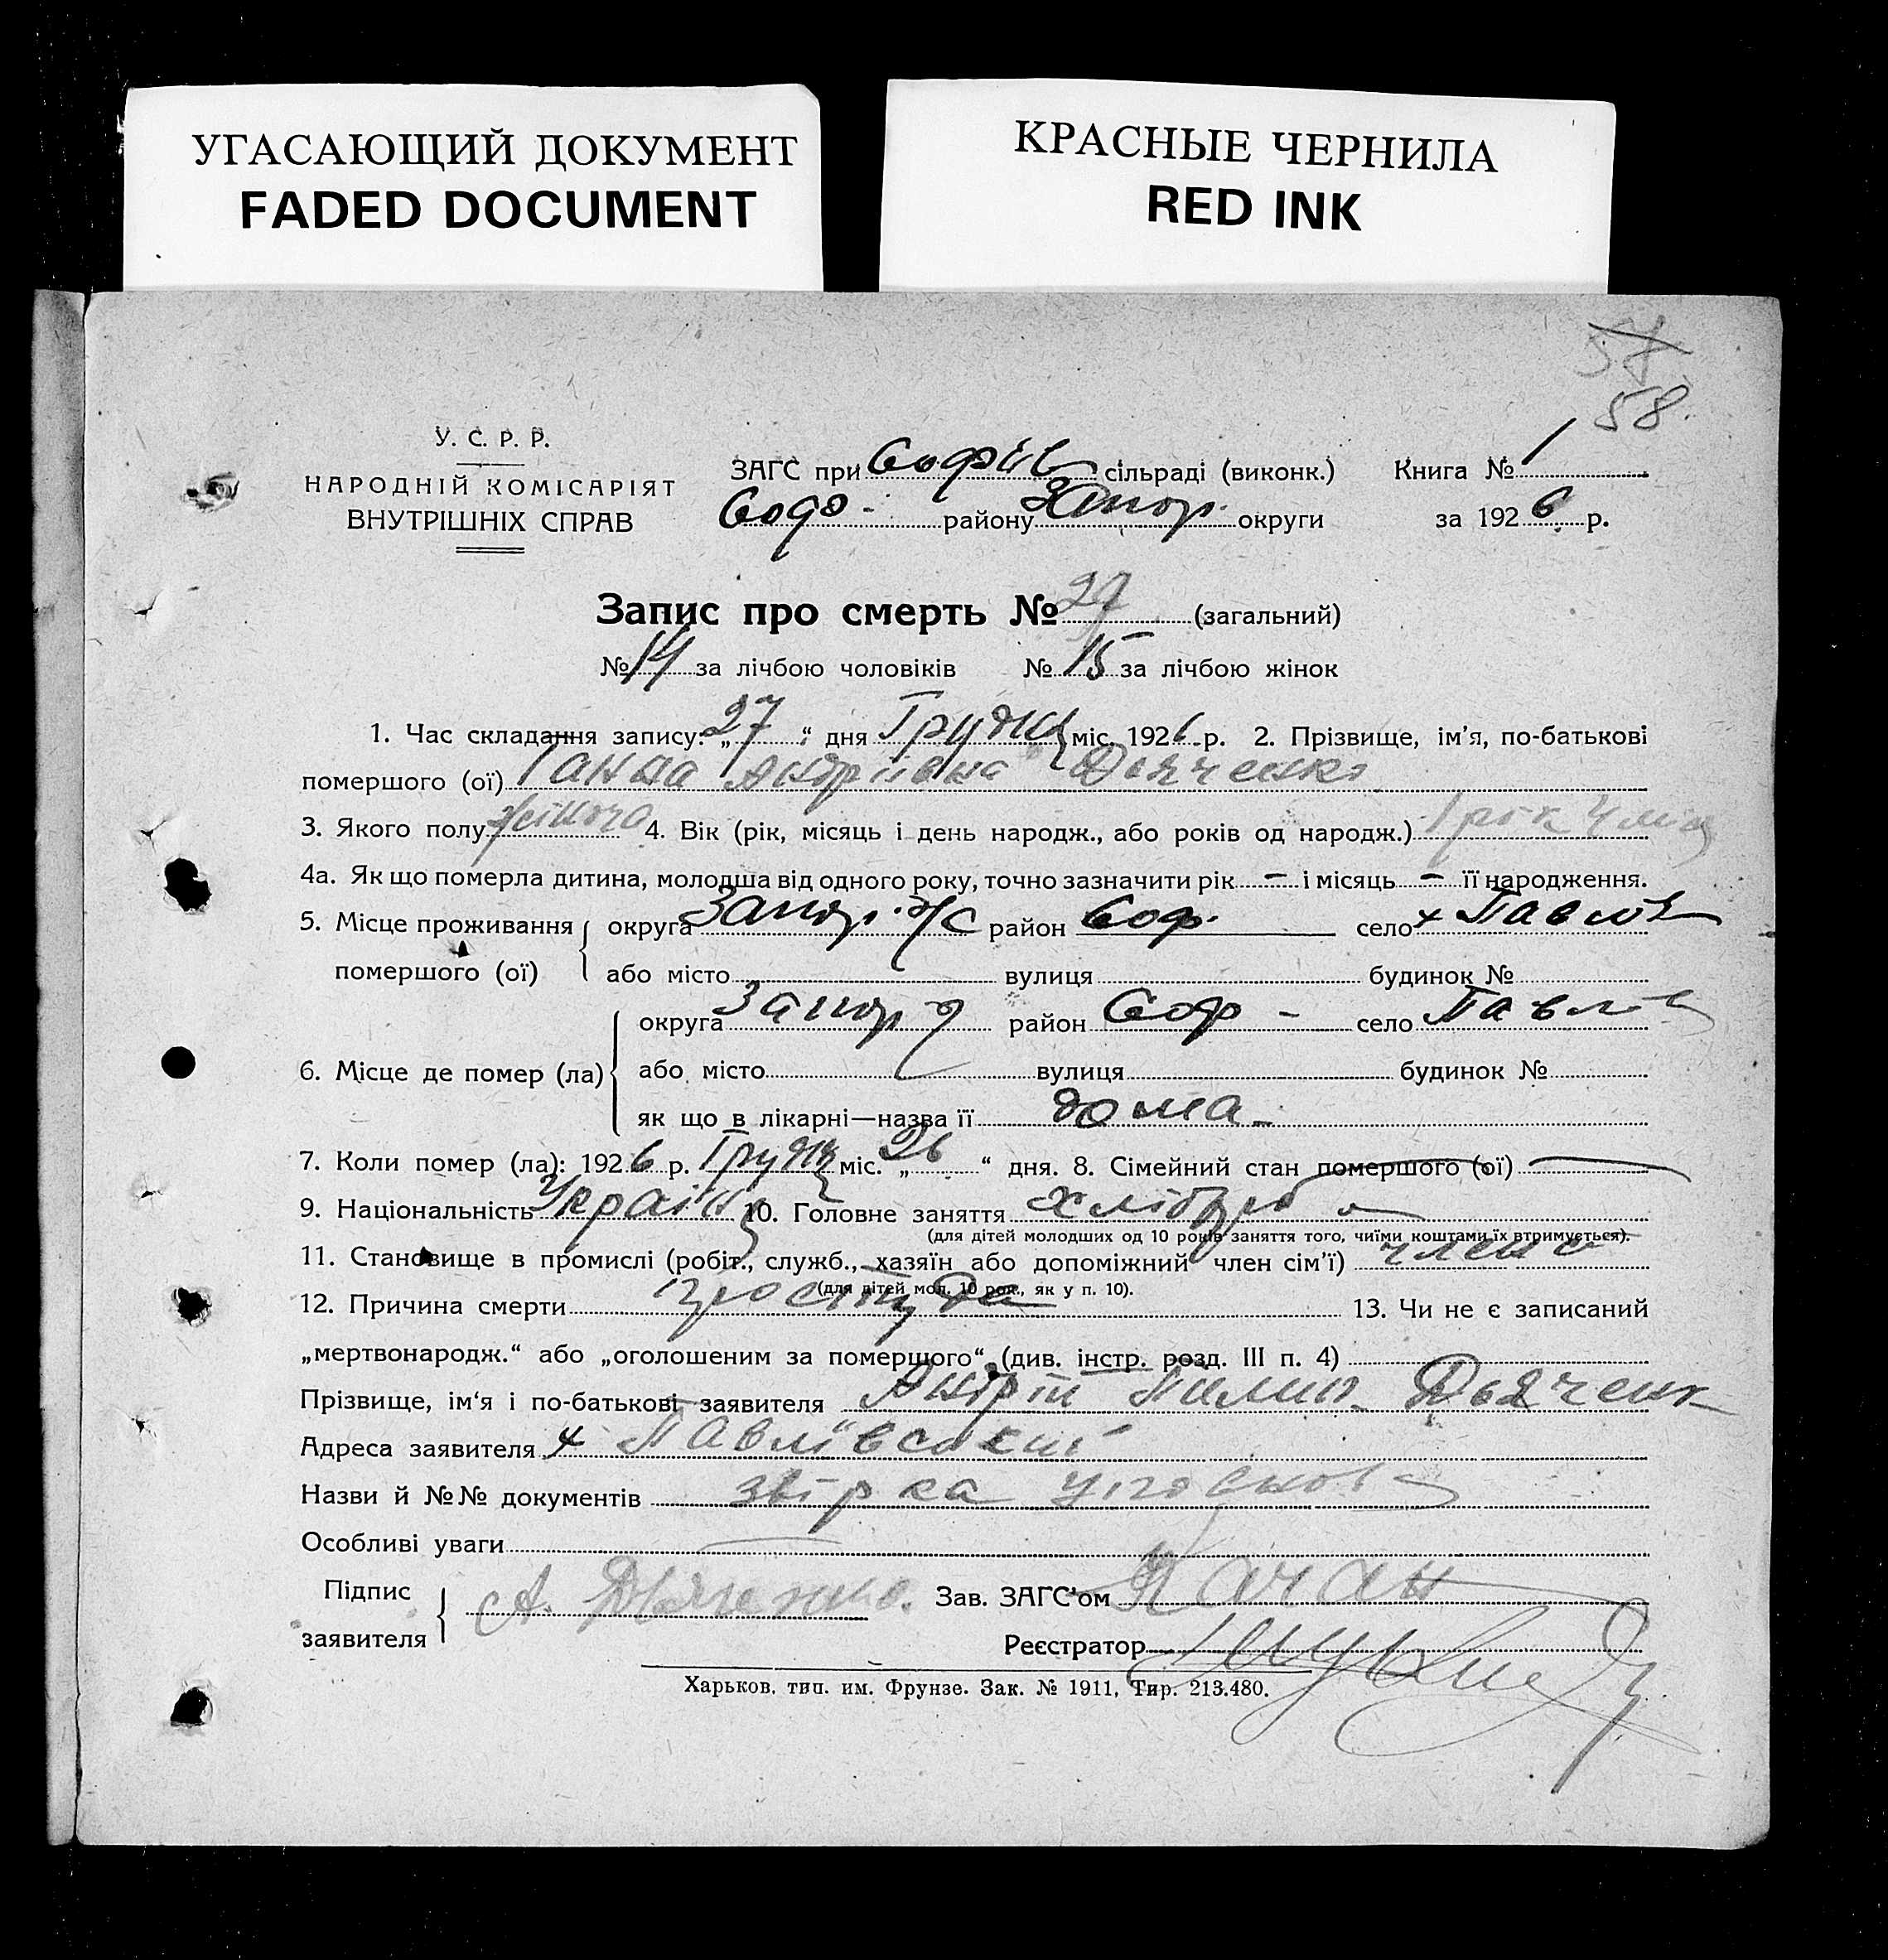 УГАСАЮЩИЙ ДОКУМЕНТ
FADED DOCUMENT
КРАСНЫЕ ЧЕРНИЛА
RED INK
57
58.
У. С. Р. Р.
НАРОДНІЙ КОМІСАРІЯТ
ВНУТРІШНІХ СПРАВ
ЗАГС при Софіїв сільраді (виконк.) Книга № 1
Соф - району Запор. округи за 1926 р.
Запис про смерть № 29 (загальний)
№ 14 за лічбою чоловіків № 15 за лічбою жінок
1. Час складання запису: „27“ дня Грудня міс. 1926 р. 2. Прізвище, ім’я, по-батькові
помершого (ої) Ганна Андріївна Дьяченко
3. Якого полу жіночо 4. Вік (рік, місяць і день народж., або років од народж.) 1 рік 4 міс
4а. Як що померла дитина, молодша від одного року, точно зазначити рік - і місяць - її народження.
5. Місце проживання помершого (ої) округа Запоріж район Соф. село х Павлів
або місто вулиця будинок №
6. Місце де помер (ла) округа Запор район Соф - село Павлів
або місто вулиця будинок №
як що в лікарні—назва її дома -
7. Коли помер (ла): 1926 р. Грудня міс. „26“ дня. 8. Сімейний стан помершого (ої)
9. Національність Україн 10. Головне заняття хлібороб
(для дітей молодших од 10 років заняття того, чиїми коштами їх втримується).
11. Становище в промислі (робіт., служб., хазяїн або допоміжний член сім’ї) член
(для дітей мол. 10 рок., як у п. 10).
12. Причина смерти простуда 13. Чи не є записаний
„мертвонародж.“ або „оголошеним за помершого“ (див. інстр. розд. III п. 4)
Прізвище, ім‘я і по-батькові заявителя Андрій Пилип. Дьяченк
Адреса заявителя х Павлівський
Назви й №№ документів звірка
Особливі уваги
Підпис заявителя А. Дьяченко. Зав. ЗАГС’ом Качан
Реєстратор
Харьков, тип. им. Фрунзе. Зак. № 1911, Тир. 213.480.